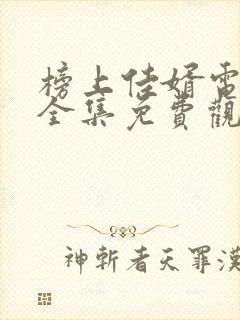 榜上佳婿電
全集免費觀
神斬者天罪漢